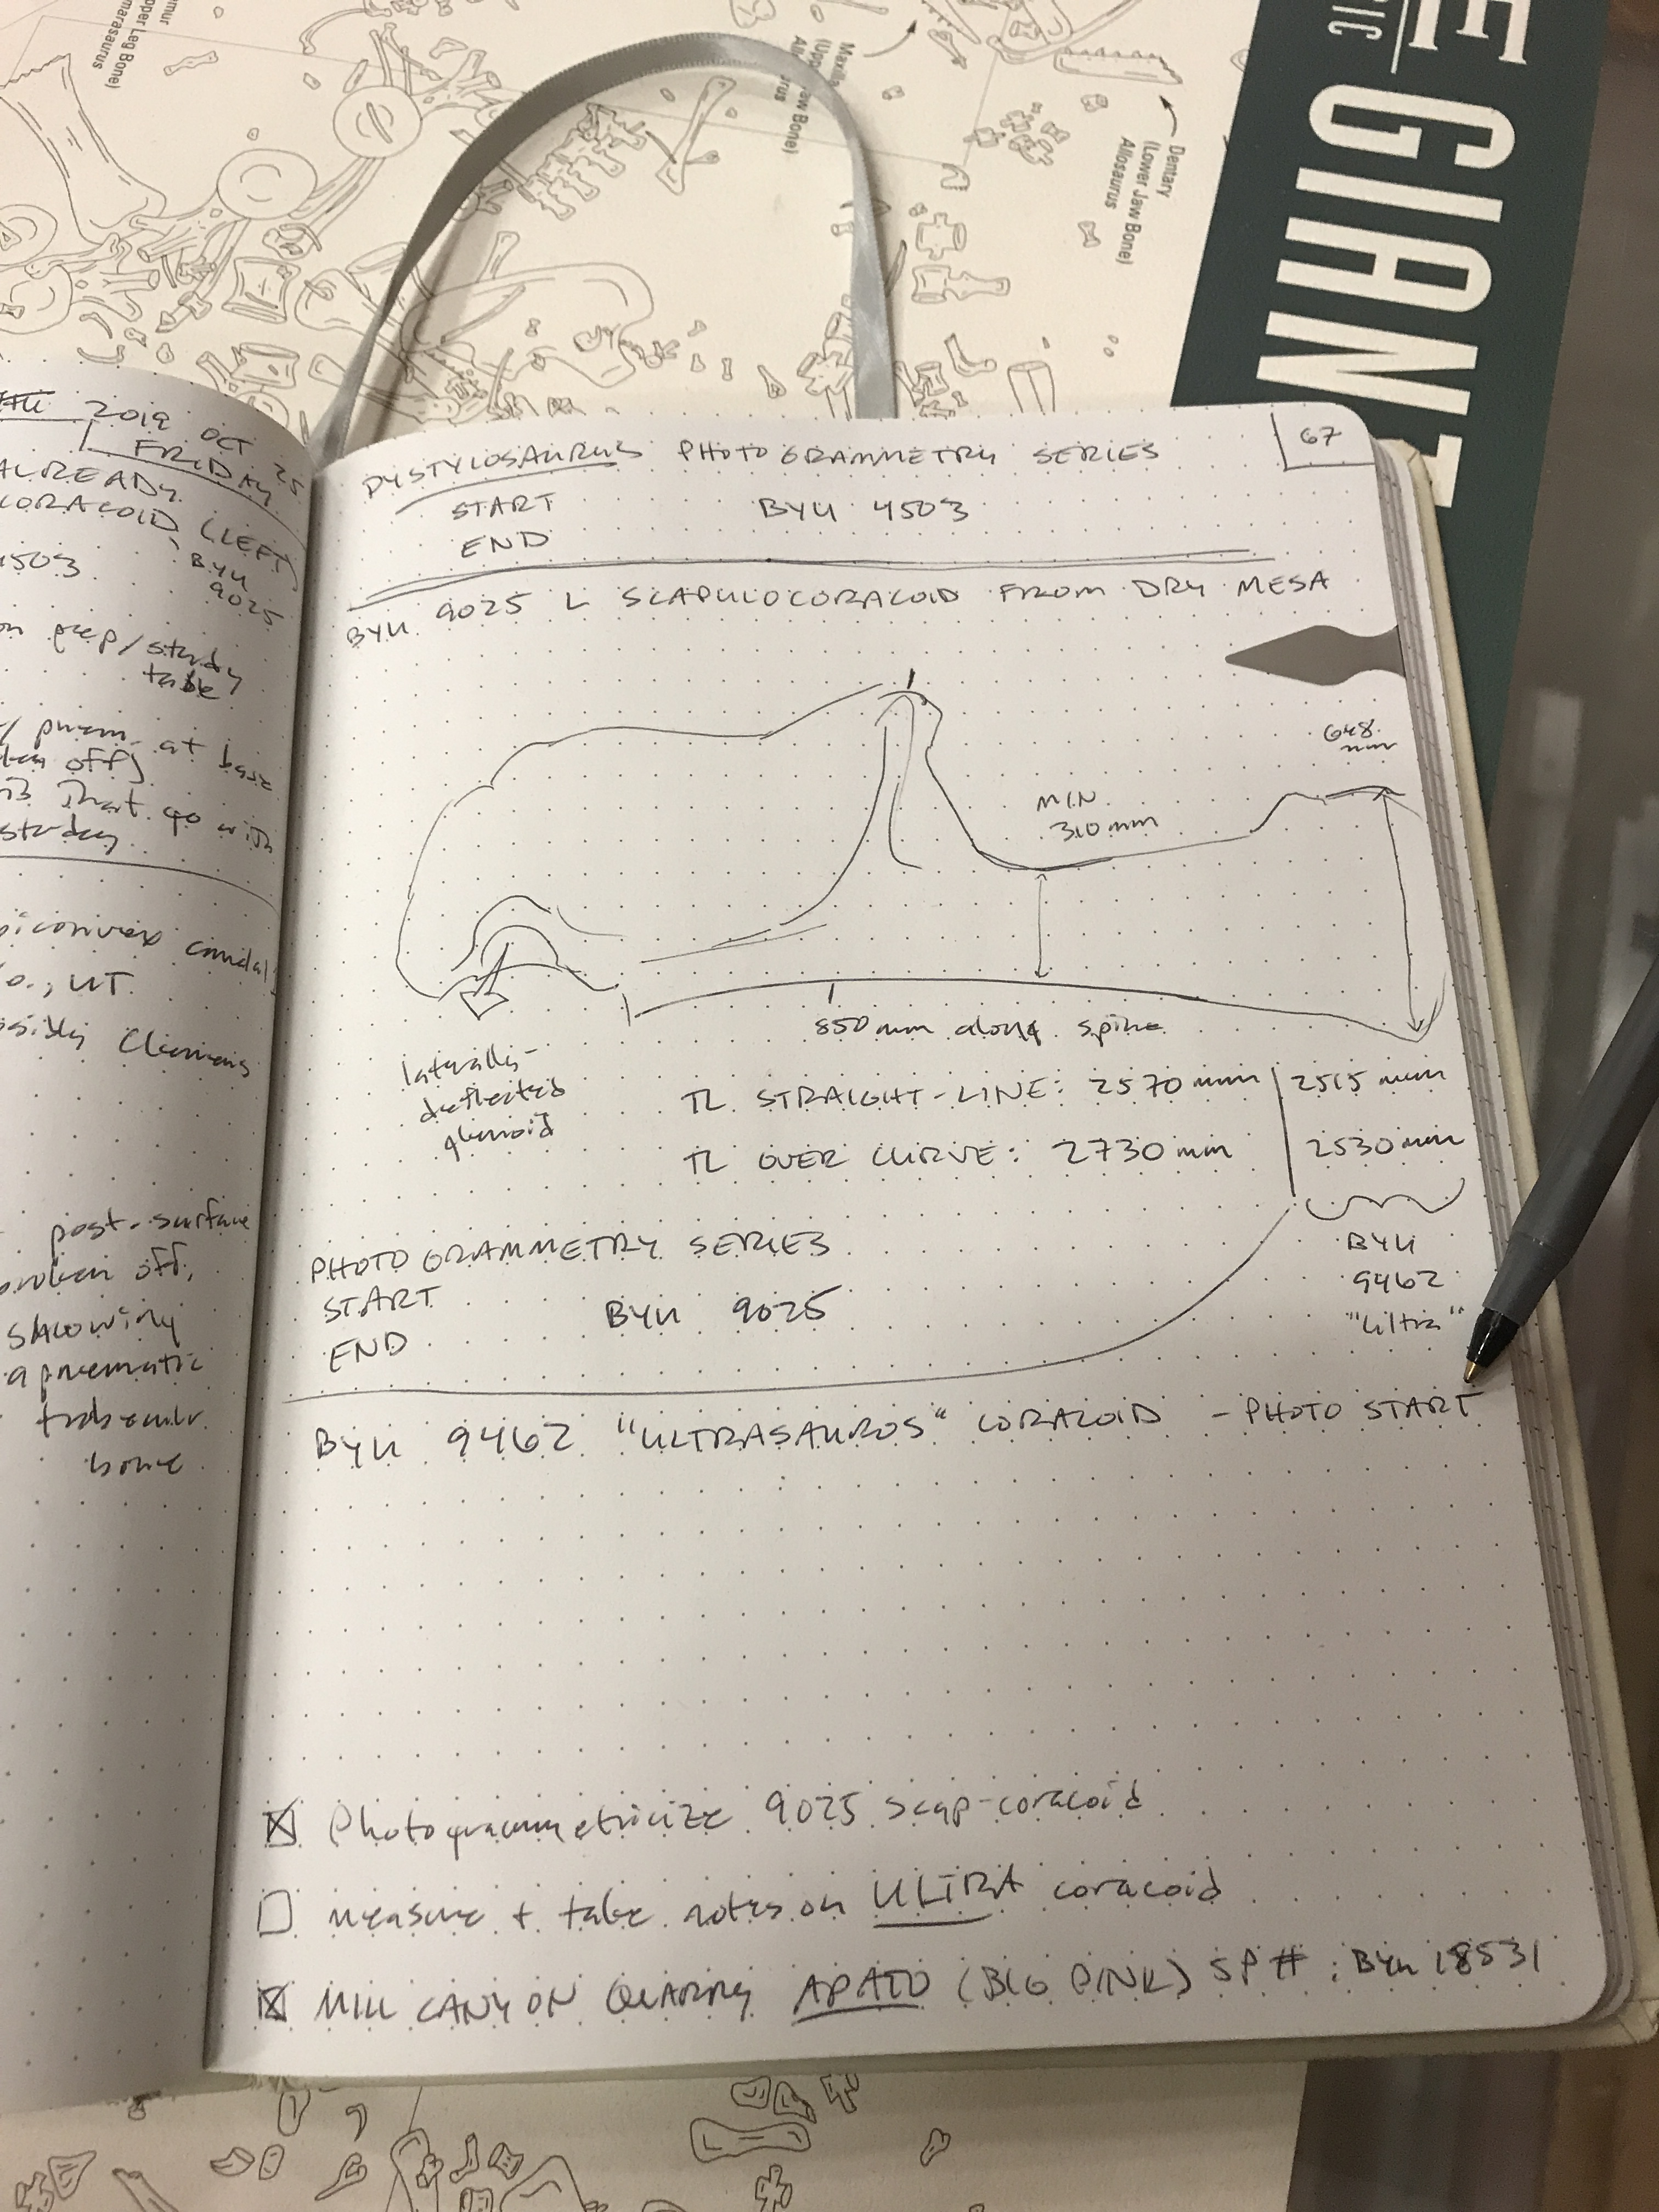 per Leg Bone)
marasaurus
Maxilla
(Upp
aw Bone)
Allo
urus
Dentary
(Lower Jaw Bone)
Allosaurus
GIANT
2019 OCT 25
FRIDAY
ALREADY
CORACOID (LEFT)
4503 BYU
9025
on prep/study
table
pneum. at base
off)
that go with
caudal
UT
post. surface
broken off,
showing
a pneumatic
bone
DYSTYLOSAURUS PHOTOGRAMMETRY SERIES
67
START BYU 4503
END
BYU 9025 L SCAPULOCORACOID FROM DRY MESA
648
mm
MIN
310 mm
850 mm along spine
laterally-
deflected
glenoid
TL STRAIGHT-LINE: 2570 mm | 2515 mm
TL OVER CURVE: 2730 mm | 2530 mm
PHOTOGRAMMETRY SERIES
START BYU 9025
END
BYU
9462
"Ultra"
BYU 9462 "ULTRASAUROS" CORACOID - PHOTO START
Photogrammetricize 9025 scap-coracoid
measure + take notes on ULTRA coracoid
MILL CANYON QUARRY APATO (BIG PINK) SP #: BYU 18531